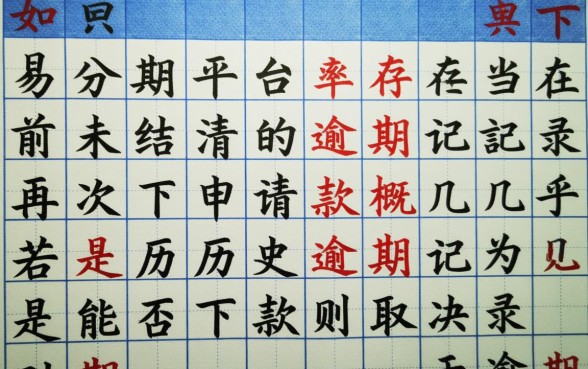 如 只 與 下
易分期平台率存存当在
前未结清的逾期记記录
再次下申请款概几几乎
若是历历史逾期记为见
是能否下款则取决录
期 于逾期